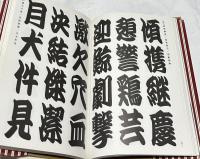 傾携継慶
憩警鶏芸
迎鯨劇撃
激欠穴血
決結傑潔
月犬件見